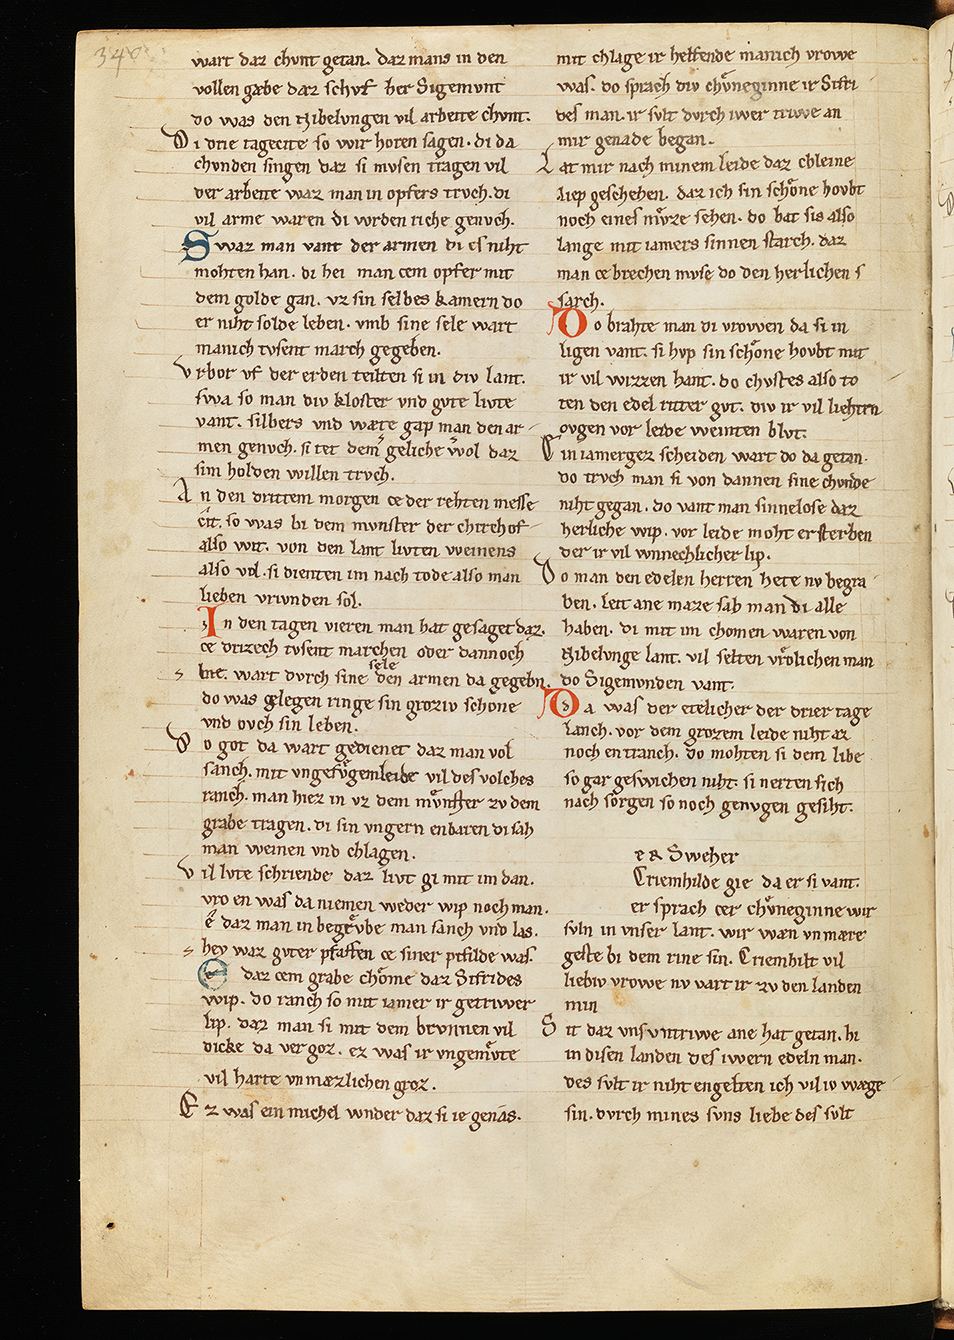 340
wart daz chvnt getan. daz mans in den
vollen gæbe daz schvf her Sigemvnt
do was den Nibelvngen vil arbeite chvnt.
Di drie tagecite so wir horen sagen. di da
chvnden singen daz si mvsen tragen vil
der arbeite waz man in opfers trvch. di
vil arme waren di vvrden riche genvch.
Swaz man vant der armen di es niht
mohten han. di hei man cem opfer mit
dem golde gan. vz sin selbes kamern do
er niht solde leben. vmb sine sele wart
manich tvsent march gegeben.
Vrbor vf der erden teilten si in div lant.
swa so man div kloster vnd gvte livte
vant. silbers vnd wæte gap man den ar
men genvch. si tet dem geliche wol daz
sim holden willen trvch.
An den drittem morgen ce der rehten messe
cit. so was bi dem mvnster der chirchof
also wit. von den lant livten weinens
also vol. si dienten im nach tode also man
lieben vrivnden sol.
In den tagen vieren man hat gesaget daz.
ce drizech tvsent marchen oder dannoch
baz. wart dvrch sine sele den armen da gegebn.
do was gelegen ringe sin groziv schone
vnd ovch sin leben.
Do got da wart gedienet daz man vol
sanch. mit vngefvgem leide vil des volches
ranch. man hiez in vz dem mvnster zv dem
grabe tragen. di sin vngern enbaren di sah
man weinen vnd chlagen.
Vil lvte schriende daz livt gi mit im dan.
vro en was da niemen weder wip noch man.
e daz man in begrvbe man sanch vnd las.
hey waz gvter pfaffen ce siner pifilde was.
E daz cem grabe chome daz Sifrides
wip. do ranch so mit iamer ir getriwer
lip. daz man si mit dem brvnnen vil
dicke da vergoz. ez was ir vngemvte
vil harte vnmæzlichen groz.
Ez was ein michel wnder daz si ie genas.
mit chlage ir helfende manich vrowe
was. do sprach div chvneginne ir Sifri
des man. ir svlt dvrch iwer triwe an
mir genade began.
Lat mir nach minem leide daz chleine
liep geschehen. daz ich sin schone hovbt
noch eines mvze sehen. do bat sis also
lange mit iamers sinnen starch. daz
man ce brechen mvse do den herlichen s
sarch.
Do brahte man di vrowen da si in
ligen vant. si hvp sin schone hovbt mit
ir vil wizzen hant. do chvstes also to
ten den edel ritter gvt. div ir vil liehten
ovgen vor leide weinten blvt.
Ein iamergez scheiden wart do da getan.
do trvch man si von dannen sine chvnde
niht gegan. do vant man sinnelose daz
herliche wip. vor leide moht ersterben
der ir vil wnnechlicher lip.
Do man den edelen herren hete nv begra
ben. leit ane maze sah man di alle
haben. di mit im chomen waren von
Nibelvnge lant. vil selten vrolichen man
do Sigemvnden vant.
Da was der etelicher der drier tage
lanch. vor dem grozem leide niht az
noch entranch. do mohten si dem libe
so gar geswichen niht. si nerten sich
nach sorgen so noch genvgen gesiht.
er Sweher
Criemhilde gie da er si vant.
er sprach cer chvneginne wir
svln in vnser lant. wir wæn vnmære
geste bi dem rine sin. Criemhilt vil
liebiv vrowe nv vart ir zv den landen
min
Sit daz vns vntriwe ane hat getan. hi
in disen landen des iwern edeln man.
des svlt ir niht engelten ich vil iv wæge
sin. dvrch mines svns liebe des svlt